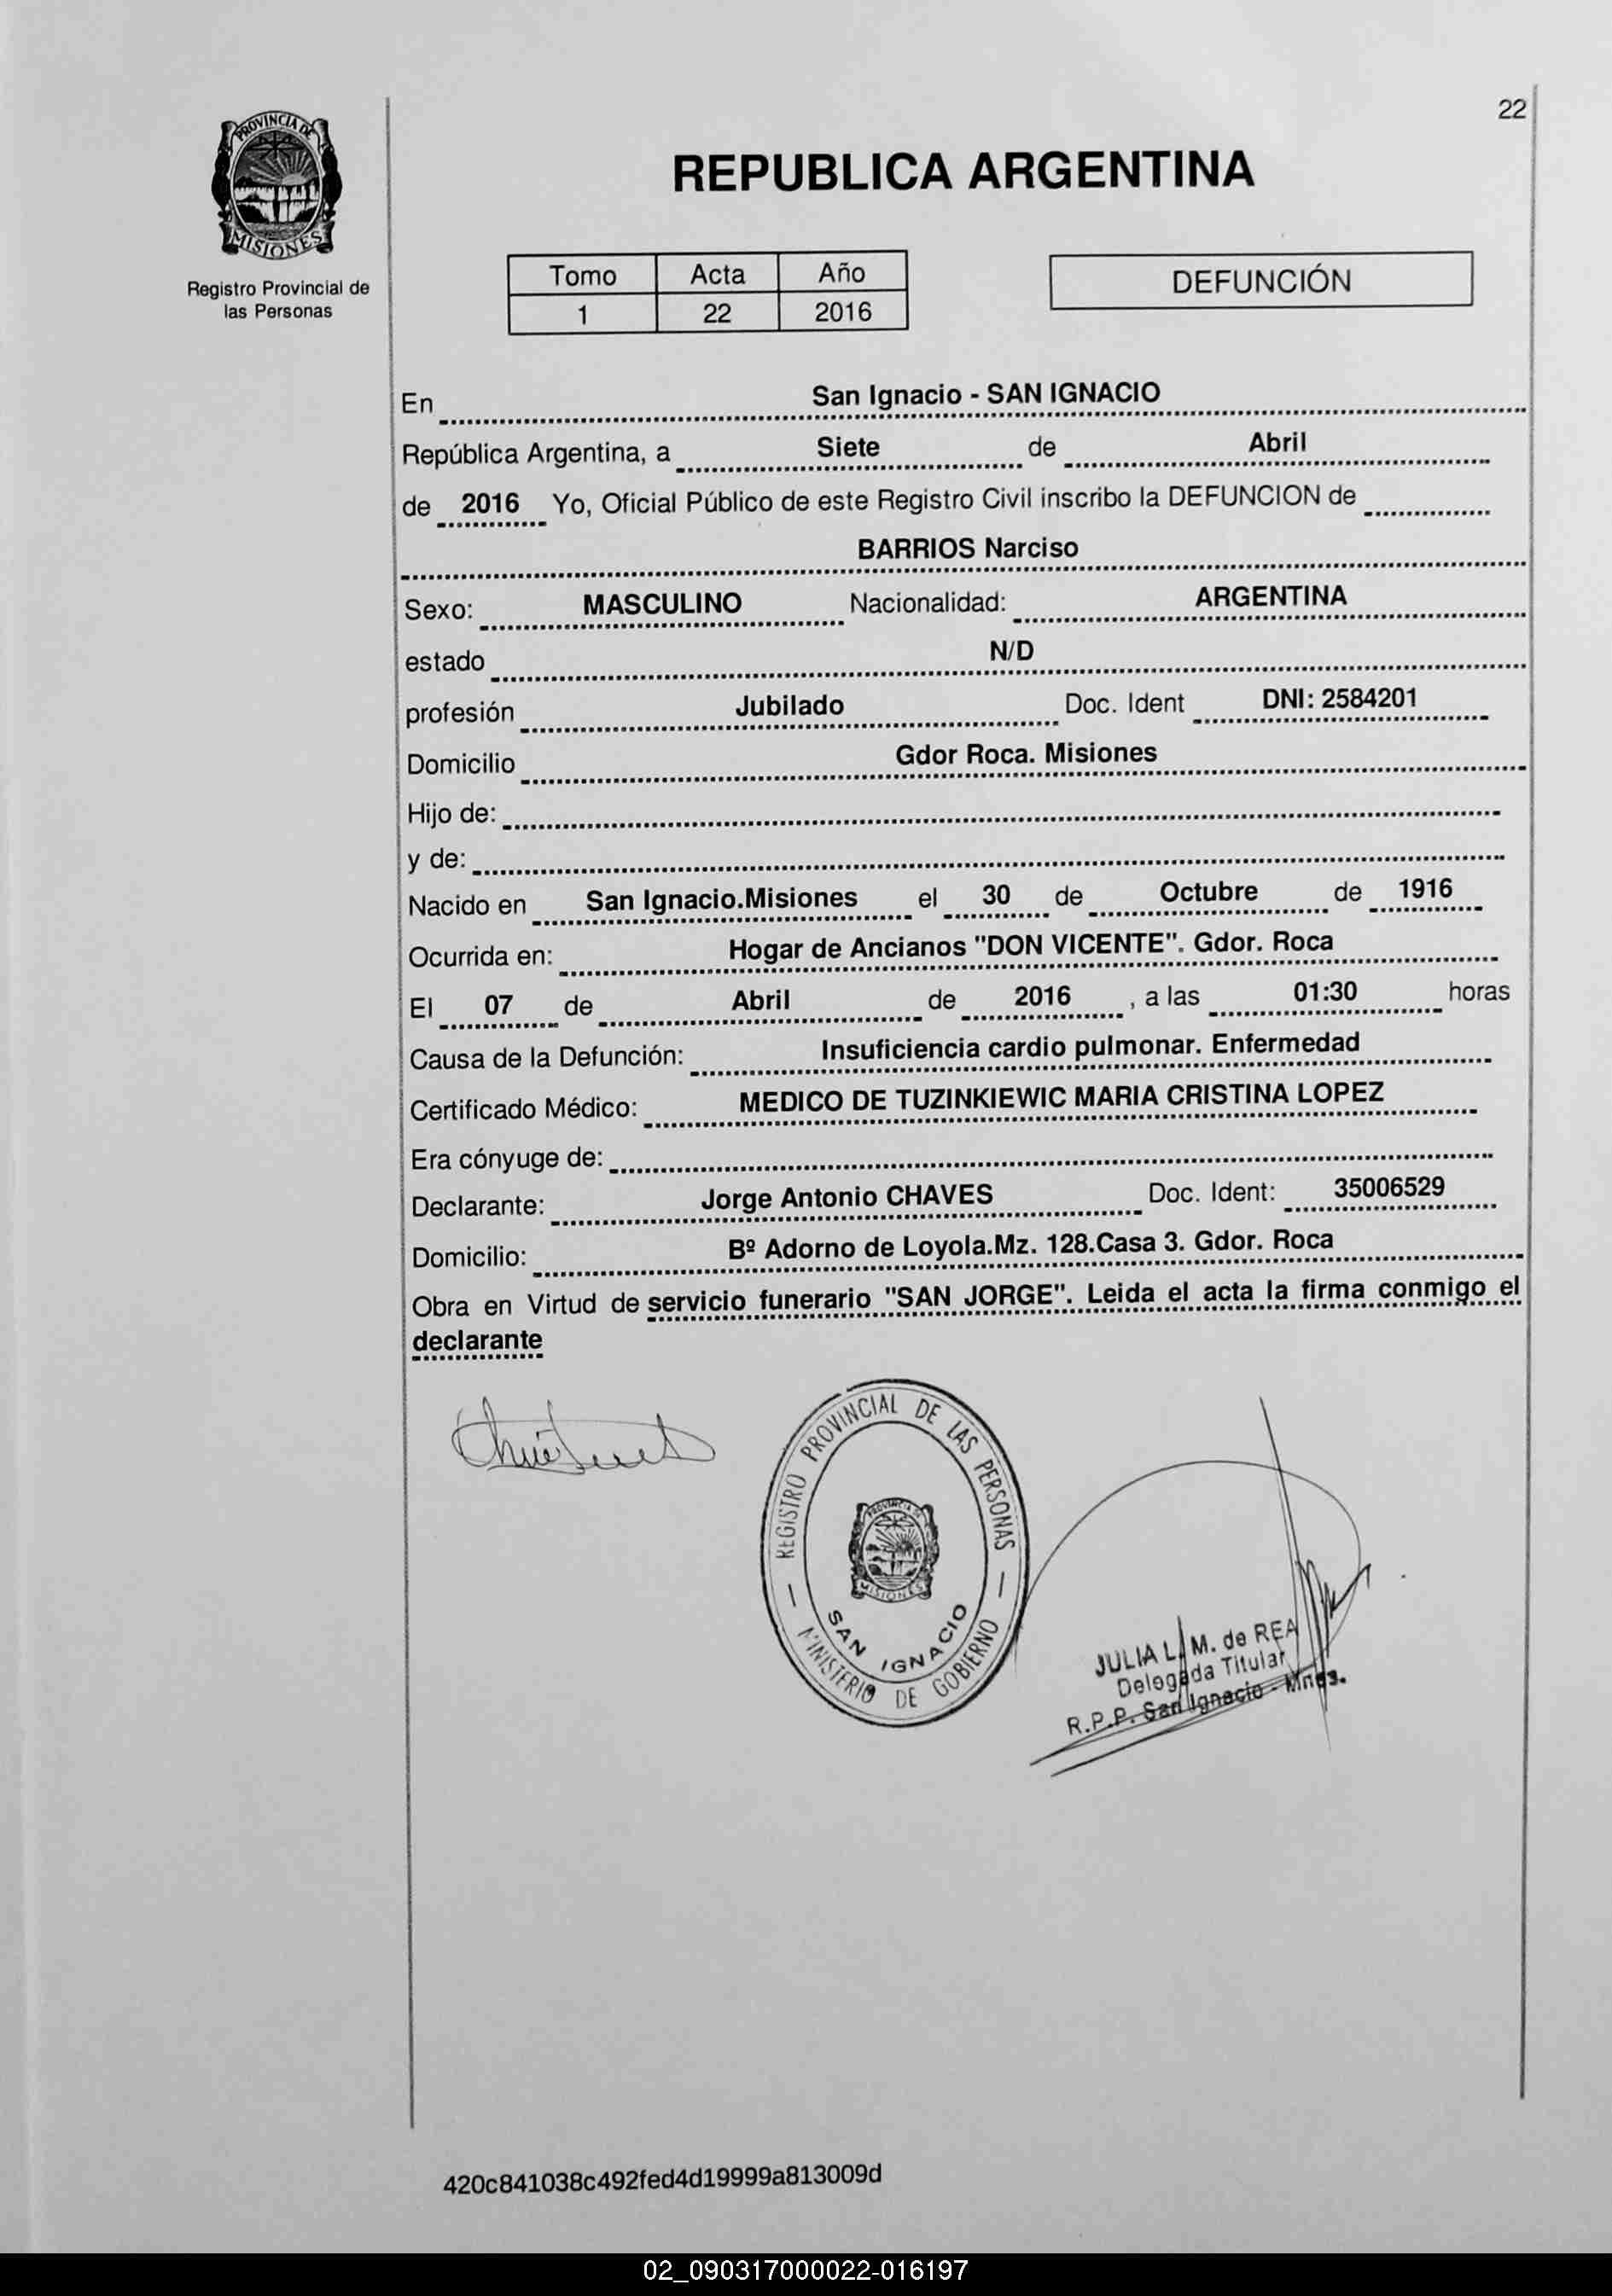 22
PROVINCIA DE
MISIONES
Registro Provincial de
las Personas
REPUBLICA ARGENTINA
Tomo Acta Año
1 22 2016
DEFUNCIÓN
En San Ignacio - SAN IGNACIO
República Argentina, a Siete de Abril
de 2016 Yo, Oficial Público de este Registro Civil inscribo la DEFUNCION de
BARRIOS Narciso
Sexo: MASCULINO Nacionalidad: ARGENTINA
estado N/D
profesión Jubilado Doc. Ident DNI: 2584201
Domicilio Gdor Roca. Misiones
Hijo de:
y de:
Nacido en San Ignacio.Misiones el 30 de Octubre de 1916
Ocurrida en: Hogar de Ancianos "DON VICENTE". Gdor. Roca
El 07 de Abril de 2016 , a las 01:30 horas
Causa de la Defunción: Insuficiencia cardio pulmonar. Enfermedad
Certificado Médico: MEDICO DE TUZINKIEWIC MARIA CRISTINA LOPEZ
Era cónyuge de:
Declarante: Jorge Antonio CHAVES Doc. Ident: 35006529
Domicilio: Bº Adorno de Loyola.Mz. 128.Casa 3. Gdor. Roca
Obra en Virtud de servicio funerario "SAN JORGE". Leida el acta la firma conmigo el
declarante
REGISTRO PROVINCIAL DE LAS PERSONAS
PROVINCIA DE
MISIONES
SAN IGNACIO
MINISTERIO DE GOBIERNO
JULIA L. M. de REA
Delegada Titular
R.P.P. San Ignacio - Mnes.
420c841038c492fed4d19999a813009d
02_090317000022-016197